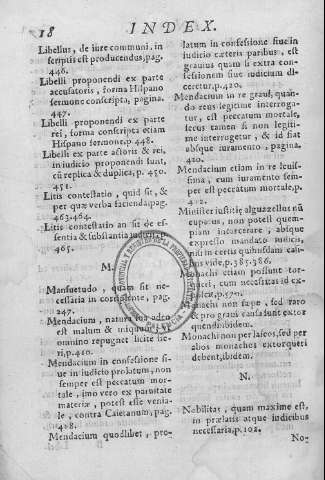 18 INDEX.
Libellus, de iure communi, in
scriptis est producendus, pag.
446.
Libelli proponendi ex parte
accusatoris, forma Hispano
sermone conscripta, pagina.
447.
Libelli proponendi ex parte
rei, forma conscripta etiam
Hispano sermone p. 448.
Libelli ex parte actoris & rei,
in iudicio proponendi sunt,
cũ replica & duplica, p. 450.
451.
Litis contestatio, quid sit, &
per quæ verba facienda, pag.
463.464.
Litis contestatio an sit de es-
sentia & substantia iudicij, p.
465.
M.
Mansuetudo, quam sit ne-
cessaria in pag.
247.
Mendacium, natura sua adeo
est malum & iniquum, vt
omnino repugnet licite fie-
ri, p.410.
Mendacium in confessione si-
ue in iudicio prolatum, non
semper est peccatum mor-
tale, imo vero ex paruitate
materiæ, potest esse venia-
le, contra Caietanum, pag.
418.
Mendacium quodlibet, pro-
latum in confessione siue in
iudicio cæteris paribus, est
grauius quam si extra con-
fessionem siue iudicium di-
ceretur, p.420.
Mendacium in re graui, quan-
do reus legitime interroga-
tur, est peccatum mortale,
secus tamen si non legiti-
me interrogetur, & id fiat
absque iuramento, pagina.
420.
Mendacium etiam in re leuis-
sima, cum iuramento sem-
per est peccatum mortale, p.
412.
Minister iustitię alguazellus nũ
cupatus, non potest quem-
piam incarcerare, absque
expresso mandato iudicis,
nisi in certis quibusdam casi-
bus vide.p.385.386.
Monachi etiam possunt tor-
queri, cum necessitas id ex-
poscit, p.570.
Monachi non sæpe, sed raro
& pro graui causa sunt extor
quendi ibidem.
Monachi non per laicos, sed per
alios monachos extorqueri
debent, ibidem.
N.
Nobilitat, quam maxime est,
in prælatis atque iudicibus
necessaria, p.102.
No-